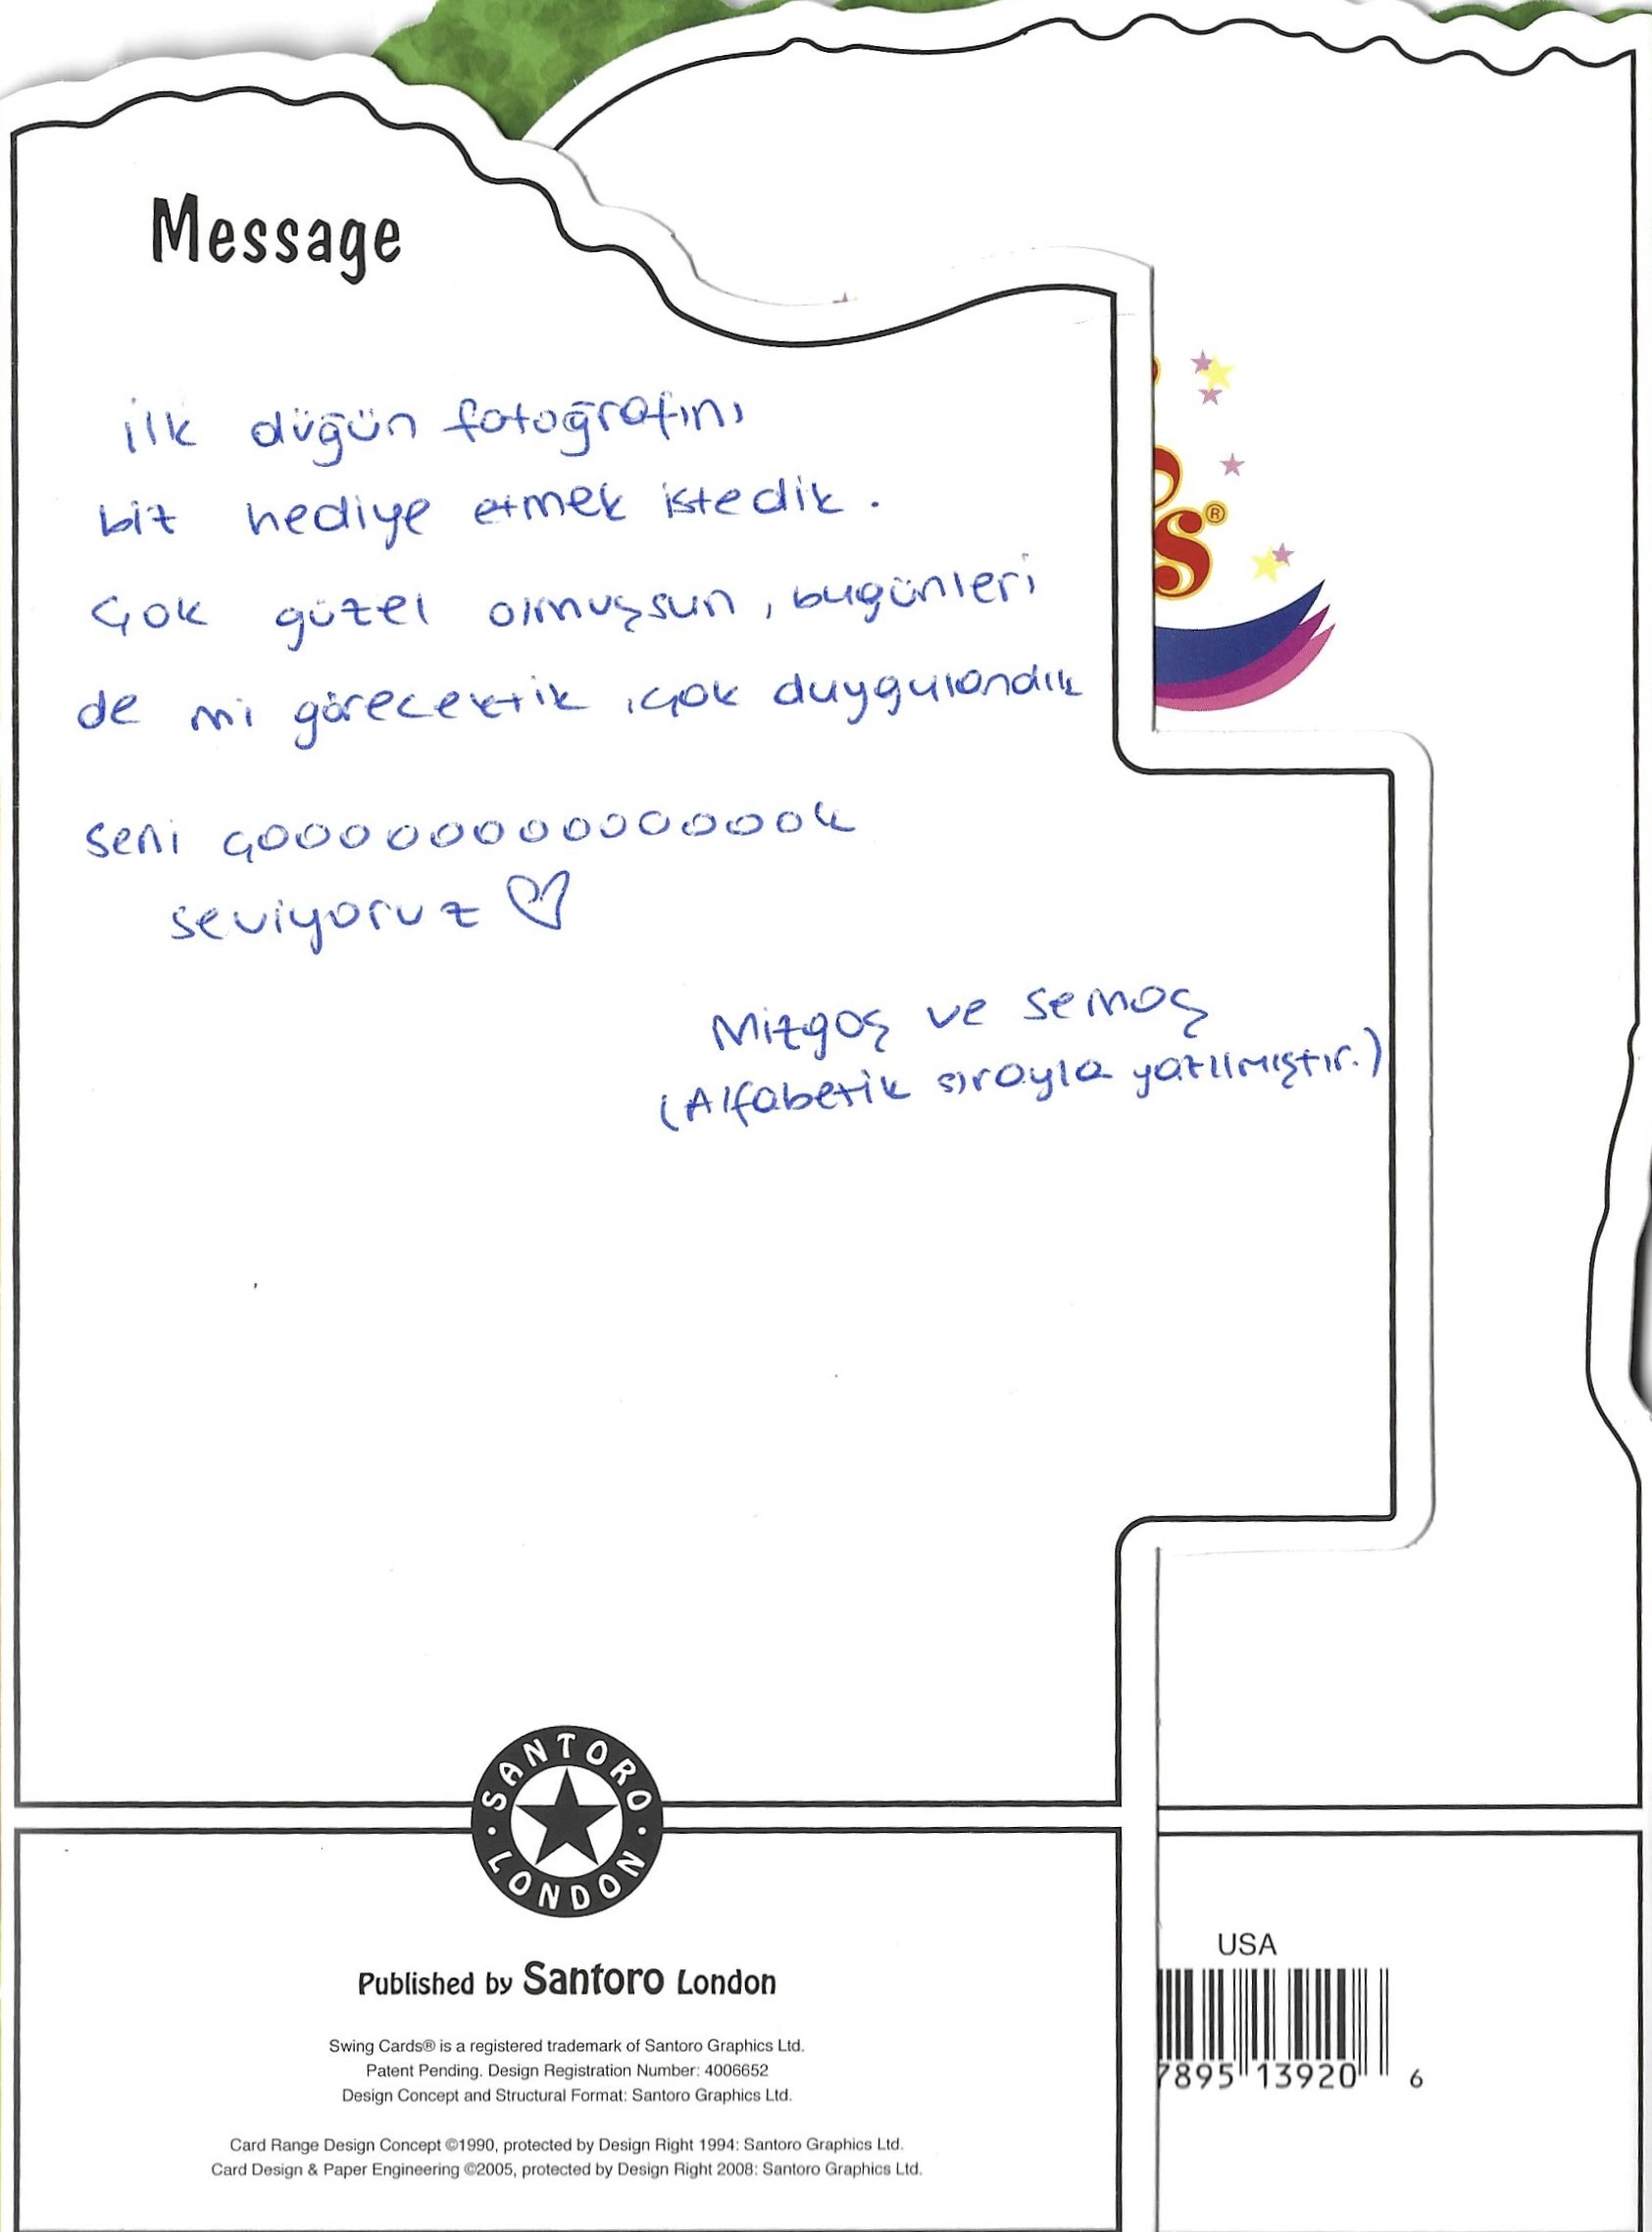 Message
ilk düğün fotoğrafını
biz hediye etmek istedik.
Çok güzel olmuşsun, bugünleri
de mi görecektik, çok duygulandık
seni çooooooooooooook
seviyoruz ♡
Mizgoş ve Semoş
(Alfabetik sırayla yazılmıştır.)
s®
SANTORO
LONDON
Published by Santoro London
Swing Cards® is a registered trademark of Santoro Graphics Ltd.
Patent Pending. Design Registration Number: 4006652
Design Concept and Structural Format: Santoro Graphics Ltd.
Card Range Design Concept ©1990, protected by Design Right 1994: Santoro Graphics Ltd.
Card Design & Paper Engineering ©2005, protected by Design Right 2008: Santoro Graphics Ltd.
USA
7895 13920 6